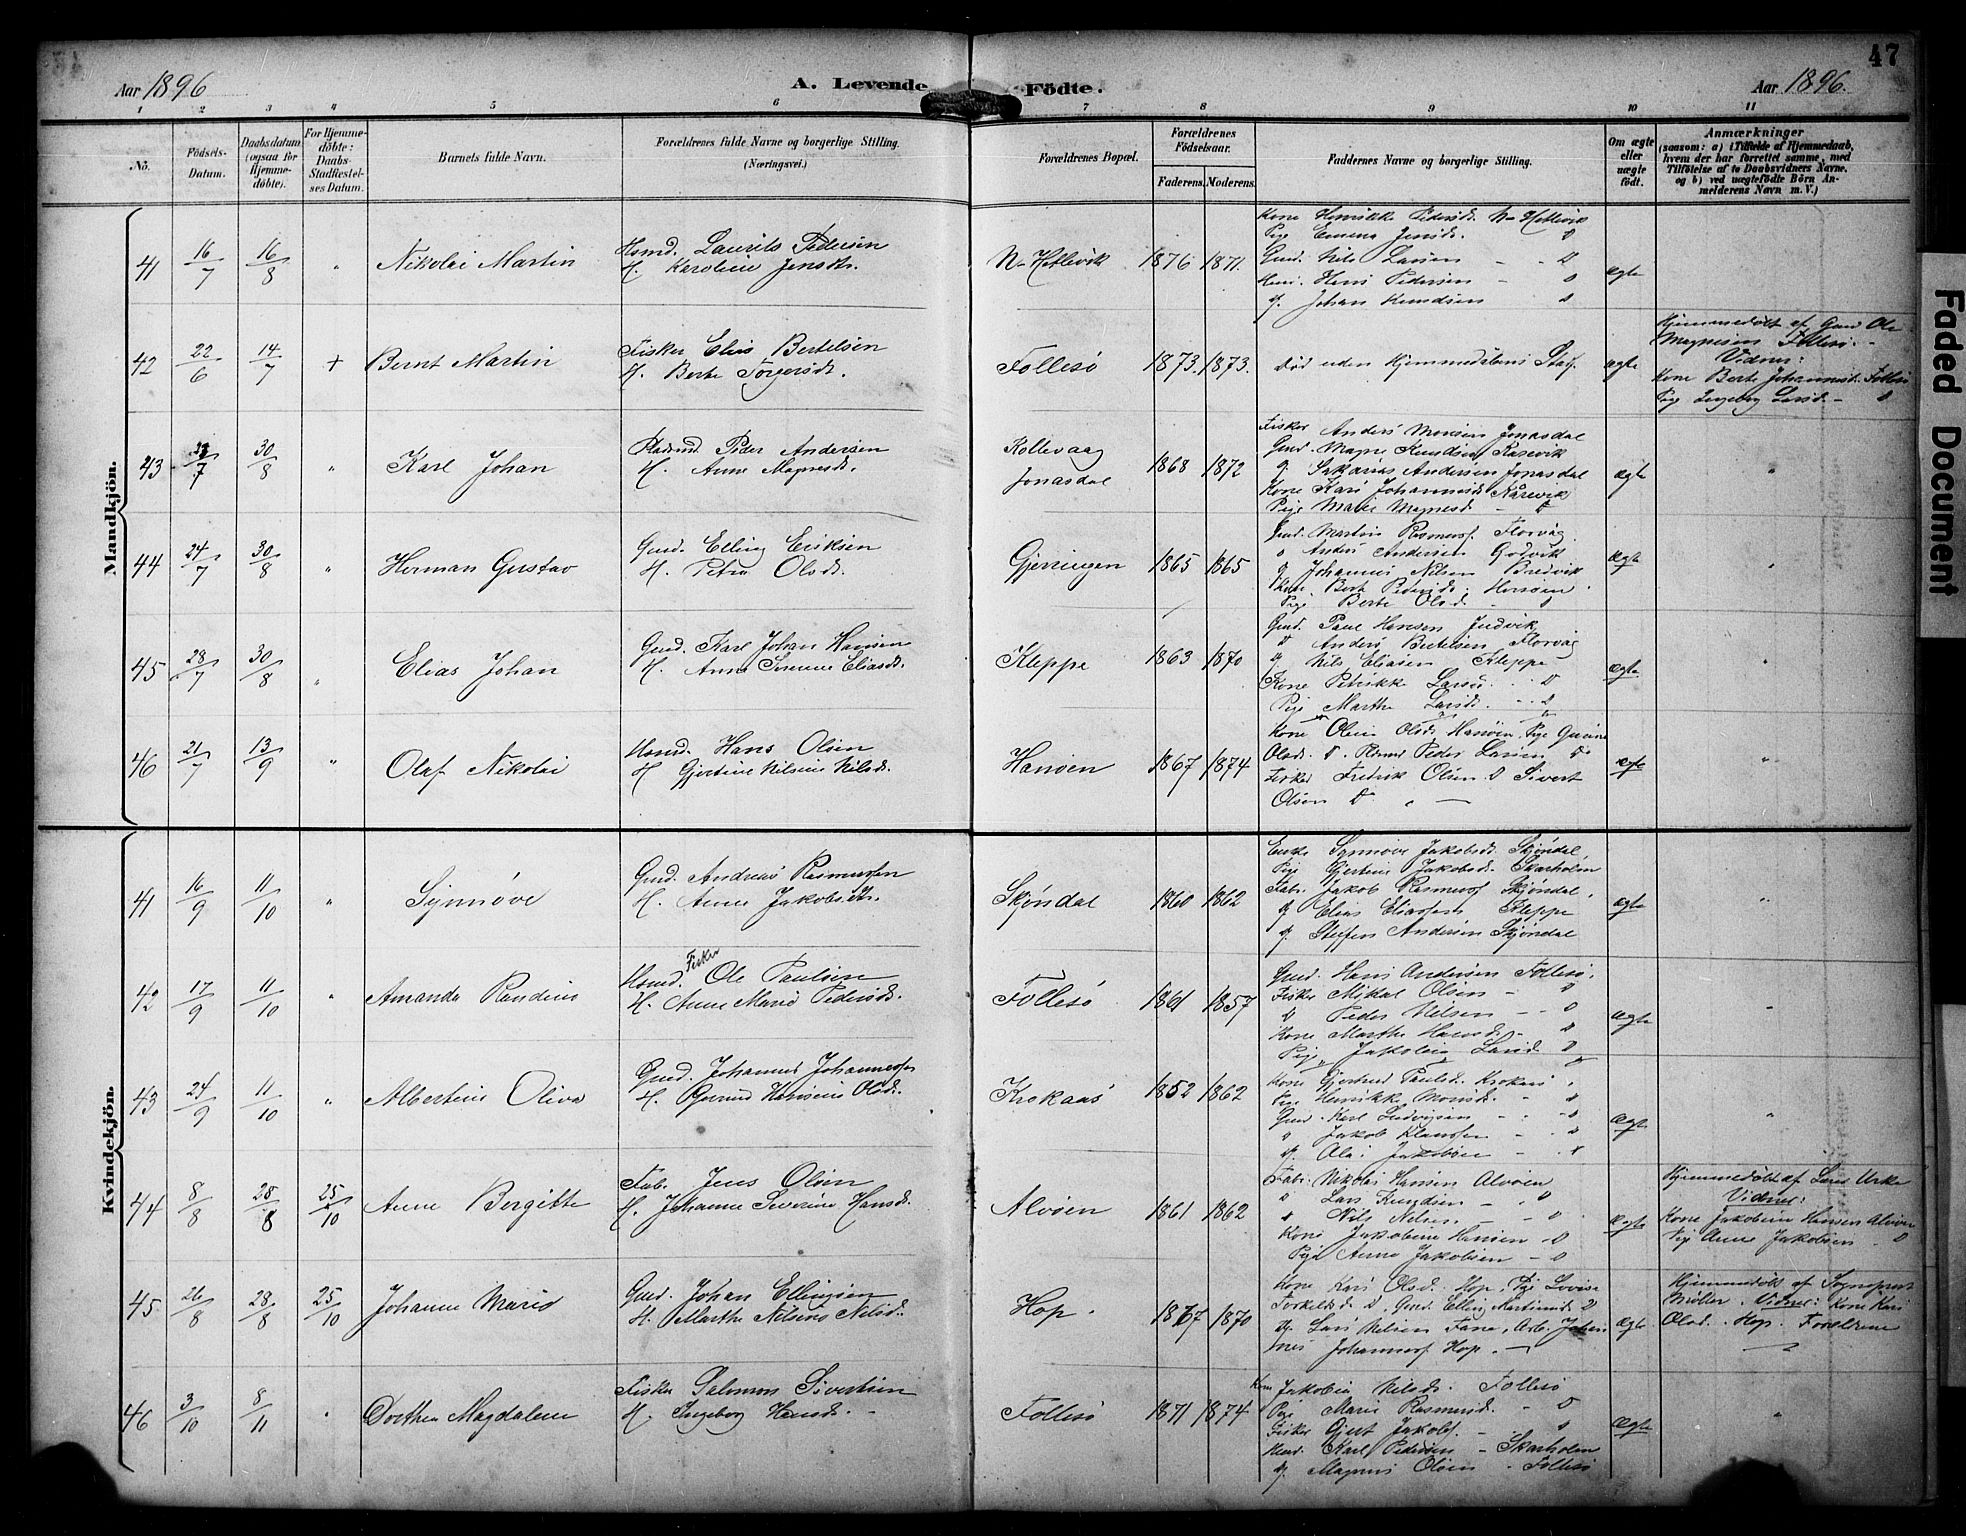 47
Aar 1896
A. Levende Födte.
Aar 1896.
1 2 3 4 5 6 7 8 9 10 11
No.
Födsels-Datum.
Daabsdatum (ogsaa for Hjemmedöbte).
For Hjemmedöbte: Daabs-Stadfæstelses Datum.
Barnets fulde Navn.
Forældrenes fulde Navne og borgerlige Stilling. (Næringsvei.)
Forældrenes Bopæl.
Forældrenes Födselsaar.
Faderens. Moderens.
Faddernes Navne og borgerlige Stilling.
Om ægte eller uægte födt.
Anmærkninger
(saasom: a) i Tilfælde af Hjemmedaab, hvem der har forrettet samme, med Tilföielse af to Daabsvidners Navne, og b) ved uægtefödte Börn Anmelderens Navn m. V.)
Mandkjön.
41 16/7 16/8 " Nikolai Martin
Husmd. Laurits Pedersen
H. Karoline Jensdtr.
N. Hetlevik 1876 1871.
Kone Henrikke Pedersd. N. Hetlevik
Pige Emma Jensd. D
Gmd. Nils Larsen - D
Pedersen - D
Johan Knudsen D
ægte
42 22/6 14/7 + Bernt Martin
Fisker Elias Bertelsen
H. Berte Torgersd.
Follesö 1873. 1873.
død uden Hjemmedaabens Staf.
ægte
Hjemmedøbt af Gmd Ole
Magnesen Follesö.
Vidner:
Kone Berte Johannesd. Follesö
Pige Ingeborg Larsd. - D
43 /7 30/8 " Karl Johan
Peder Andersen
H. Anne Magnesd.
Kollevaag
Jonasdal
1868 1872
Fisker Anders Monsen Jonasdal
Gmd. Magne Knudsen
Sakarias Andersen Jonasdal
Kone Kari Johannesd.
Pige Marie Magnesd. - D
ægte "
44 24/7 30/8 " Herman Gustav
Gmd. Elling Eriksen
H. Petra Olsd.
Gjerningen 1865 1865
Gmd. Martin Rasmuss. Florvåg.
D Anders Andersen Godvik
Johannes Nilsen Bredvik
Kone Berte Pedersd.
Pige Berte Olsd. D
ægte "
45 28/7 30/8 " Elias Johan
Gmd. Karl Johan Hansen
H. Anna Simine Eliasd.
Kleppe 1863 1870
Gmd. Paul Hansen Judvik
D Anders Bertelsen Florvåg
Nils Eliasen Kleppe
Kone Petrikke Larsd. D
Pige Marthe Larsd. D
ægte "
46 21/7 13/9 " Olaf Nikolai
Husmd. Hans Olsen
H. Gjertine Nilsine Nilsd.
Hanöen 1867 1874
Kone Oline Olsd. Hanöen, Pige
Olsd. D. Peder Larsen D
Fisker Fredrik Olsen D Sivert
Olsen D
ægte "
Kvindekjön.
41 16/9 11/10 " Synnöve
Gmd. Andreas Rasmussen
H. Anne Jakobsdtr.
Skjöndal 1860 1862
Enke Synnöve Jakobsd. Skjöndal
Pige Gjertine Jakobsd. Skarholm
Fab. Jakob Rasmuss. Skjöndal,
Elias Eliassen Kleppe
Steffen Andersen Skjöndal
ægte "
42 17/9 11/10 " Amanda Randine
Husmd. Fisker Ole Paulsen
H. Anne Marie Pedersd.
Follesö 1861 1857
Gmd. Hans Andersen Follesö.
Fisker Mikal Olsen - D
D Peder Nilsen - D
Kone Marthe Hansd. D
Pige Jakobia Larsd. D
ægte
43 24/9 11/10 " Albertine Oliva
Gmd. Johannes Johannessen
H. Hansine Olsd.
Krokaas 1852 1862
Kone Gjertrud Paulsd. Krokaas
Pige Henrikke Monsd. - D
Gmd. Karl Ludvigsen - D
D Jakob Klausen - D
Ole Jakobsen - D
ægte "
44 8/8 28/8 25/10 Anne Bergitte
Fab. Jens Olsen
H. Johanne Severine Hansd.
Alvöen 1861 1862
Fab. Nikolai Hansen Alvöen
D Lars Knudsen - D
D Nils Nilsen - D
Kone Jakobine Hansen - D
Pige Anne Jakobsen - D
ægte
Hjemmedøbt af
Vidner:
Kone Jakobine Hansen Alvöen
Pige Anne Jakobsen - D
45 26/8 28/8 25/10 Johanne Marie
Gmd. Johan Ellingsen
H. Marthe Nilsine Nilsd.
Hop. 1867 1870
Kone Kari Olsd. Hop, Pige Lovise
Torkelsd. D, Gmd. Elling D
Lars Nilsen Fane, Arb.
Johanness. Hop.
ægte
Hjemmedøbt af Sogneprest
Möller. Vidner: Kone Kari
Olsd. Hop. Forældrene
46 3/10 8/11 " Dorthea Magdalene
Fisker Salomon Sivertsen
H. Ingeborg Hansd.
Follesö 1871 1874
Kone Jakobia Nilsd. Follesö
Pige Marie Rasmusd. - D
Fisker Gjert Jakobs. - D
Karl Pedersen - Skarholm
Magnus Olsen - Follesö
ægte "
Faded Document